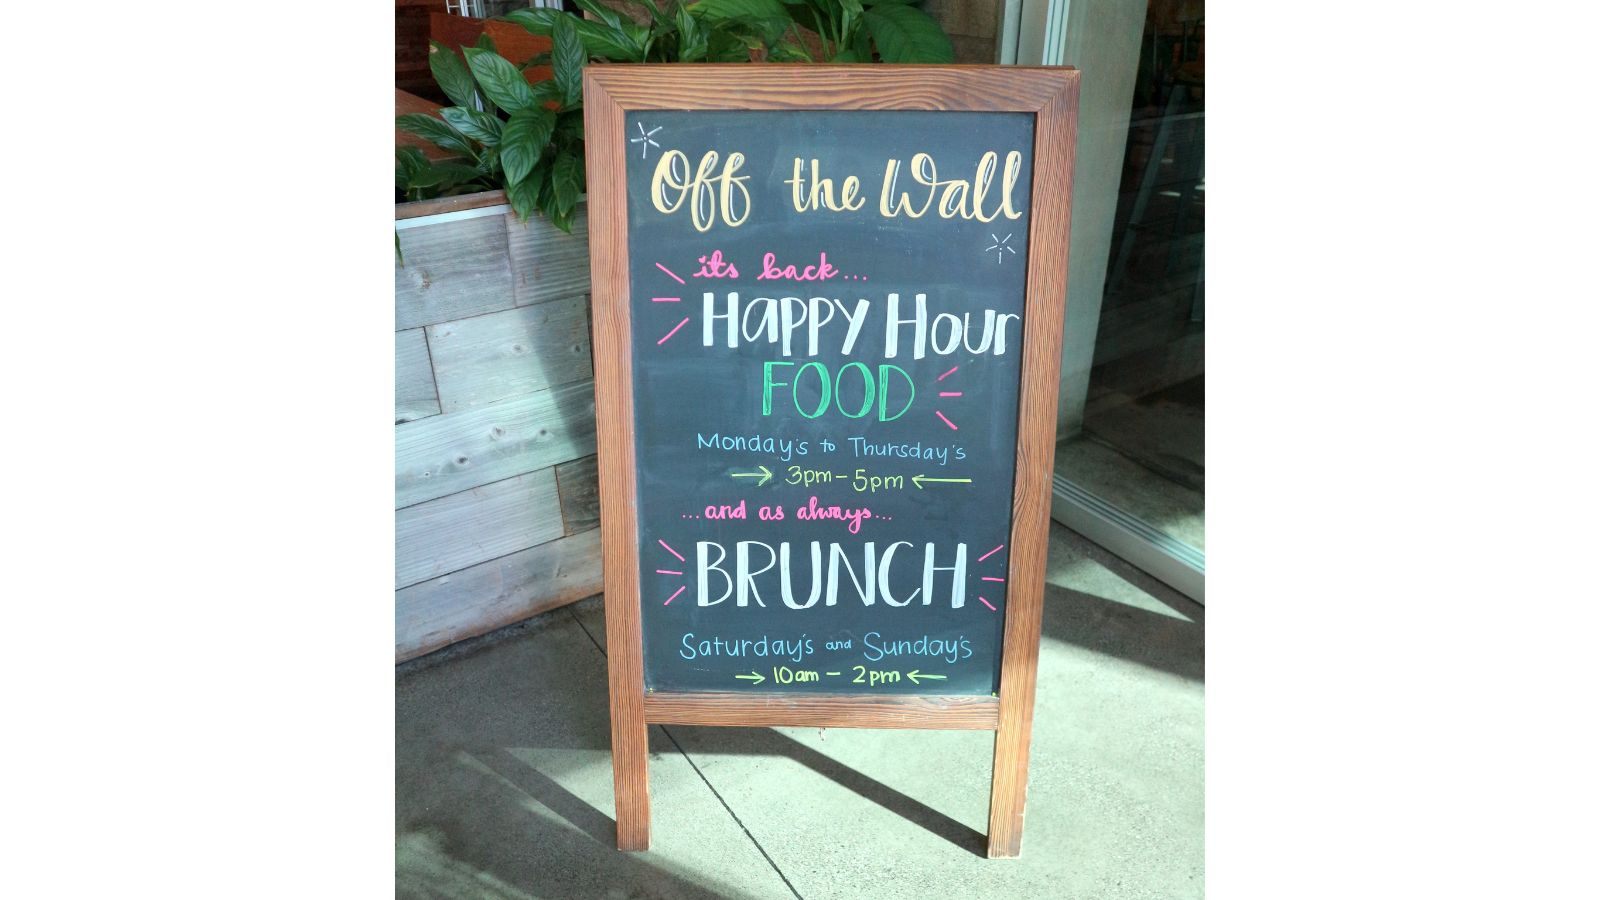 Off the Wall
its back...
Happy Hour
FOOD
Monday's to Thursday's
3pm - 5pm
...and as always...
BRUNCH
Saturday's and Sunday's
10am - 2pm